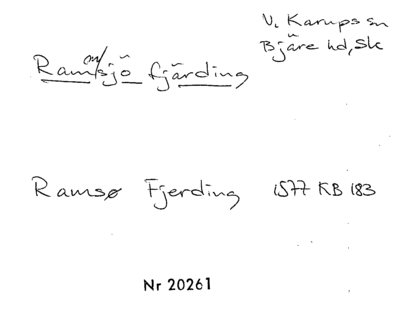 V. Karups sn
Bjäre hd, Sk
Ramsjö fjärding
Ramsø Fjerding 1577 KB 183
Nr 20261